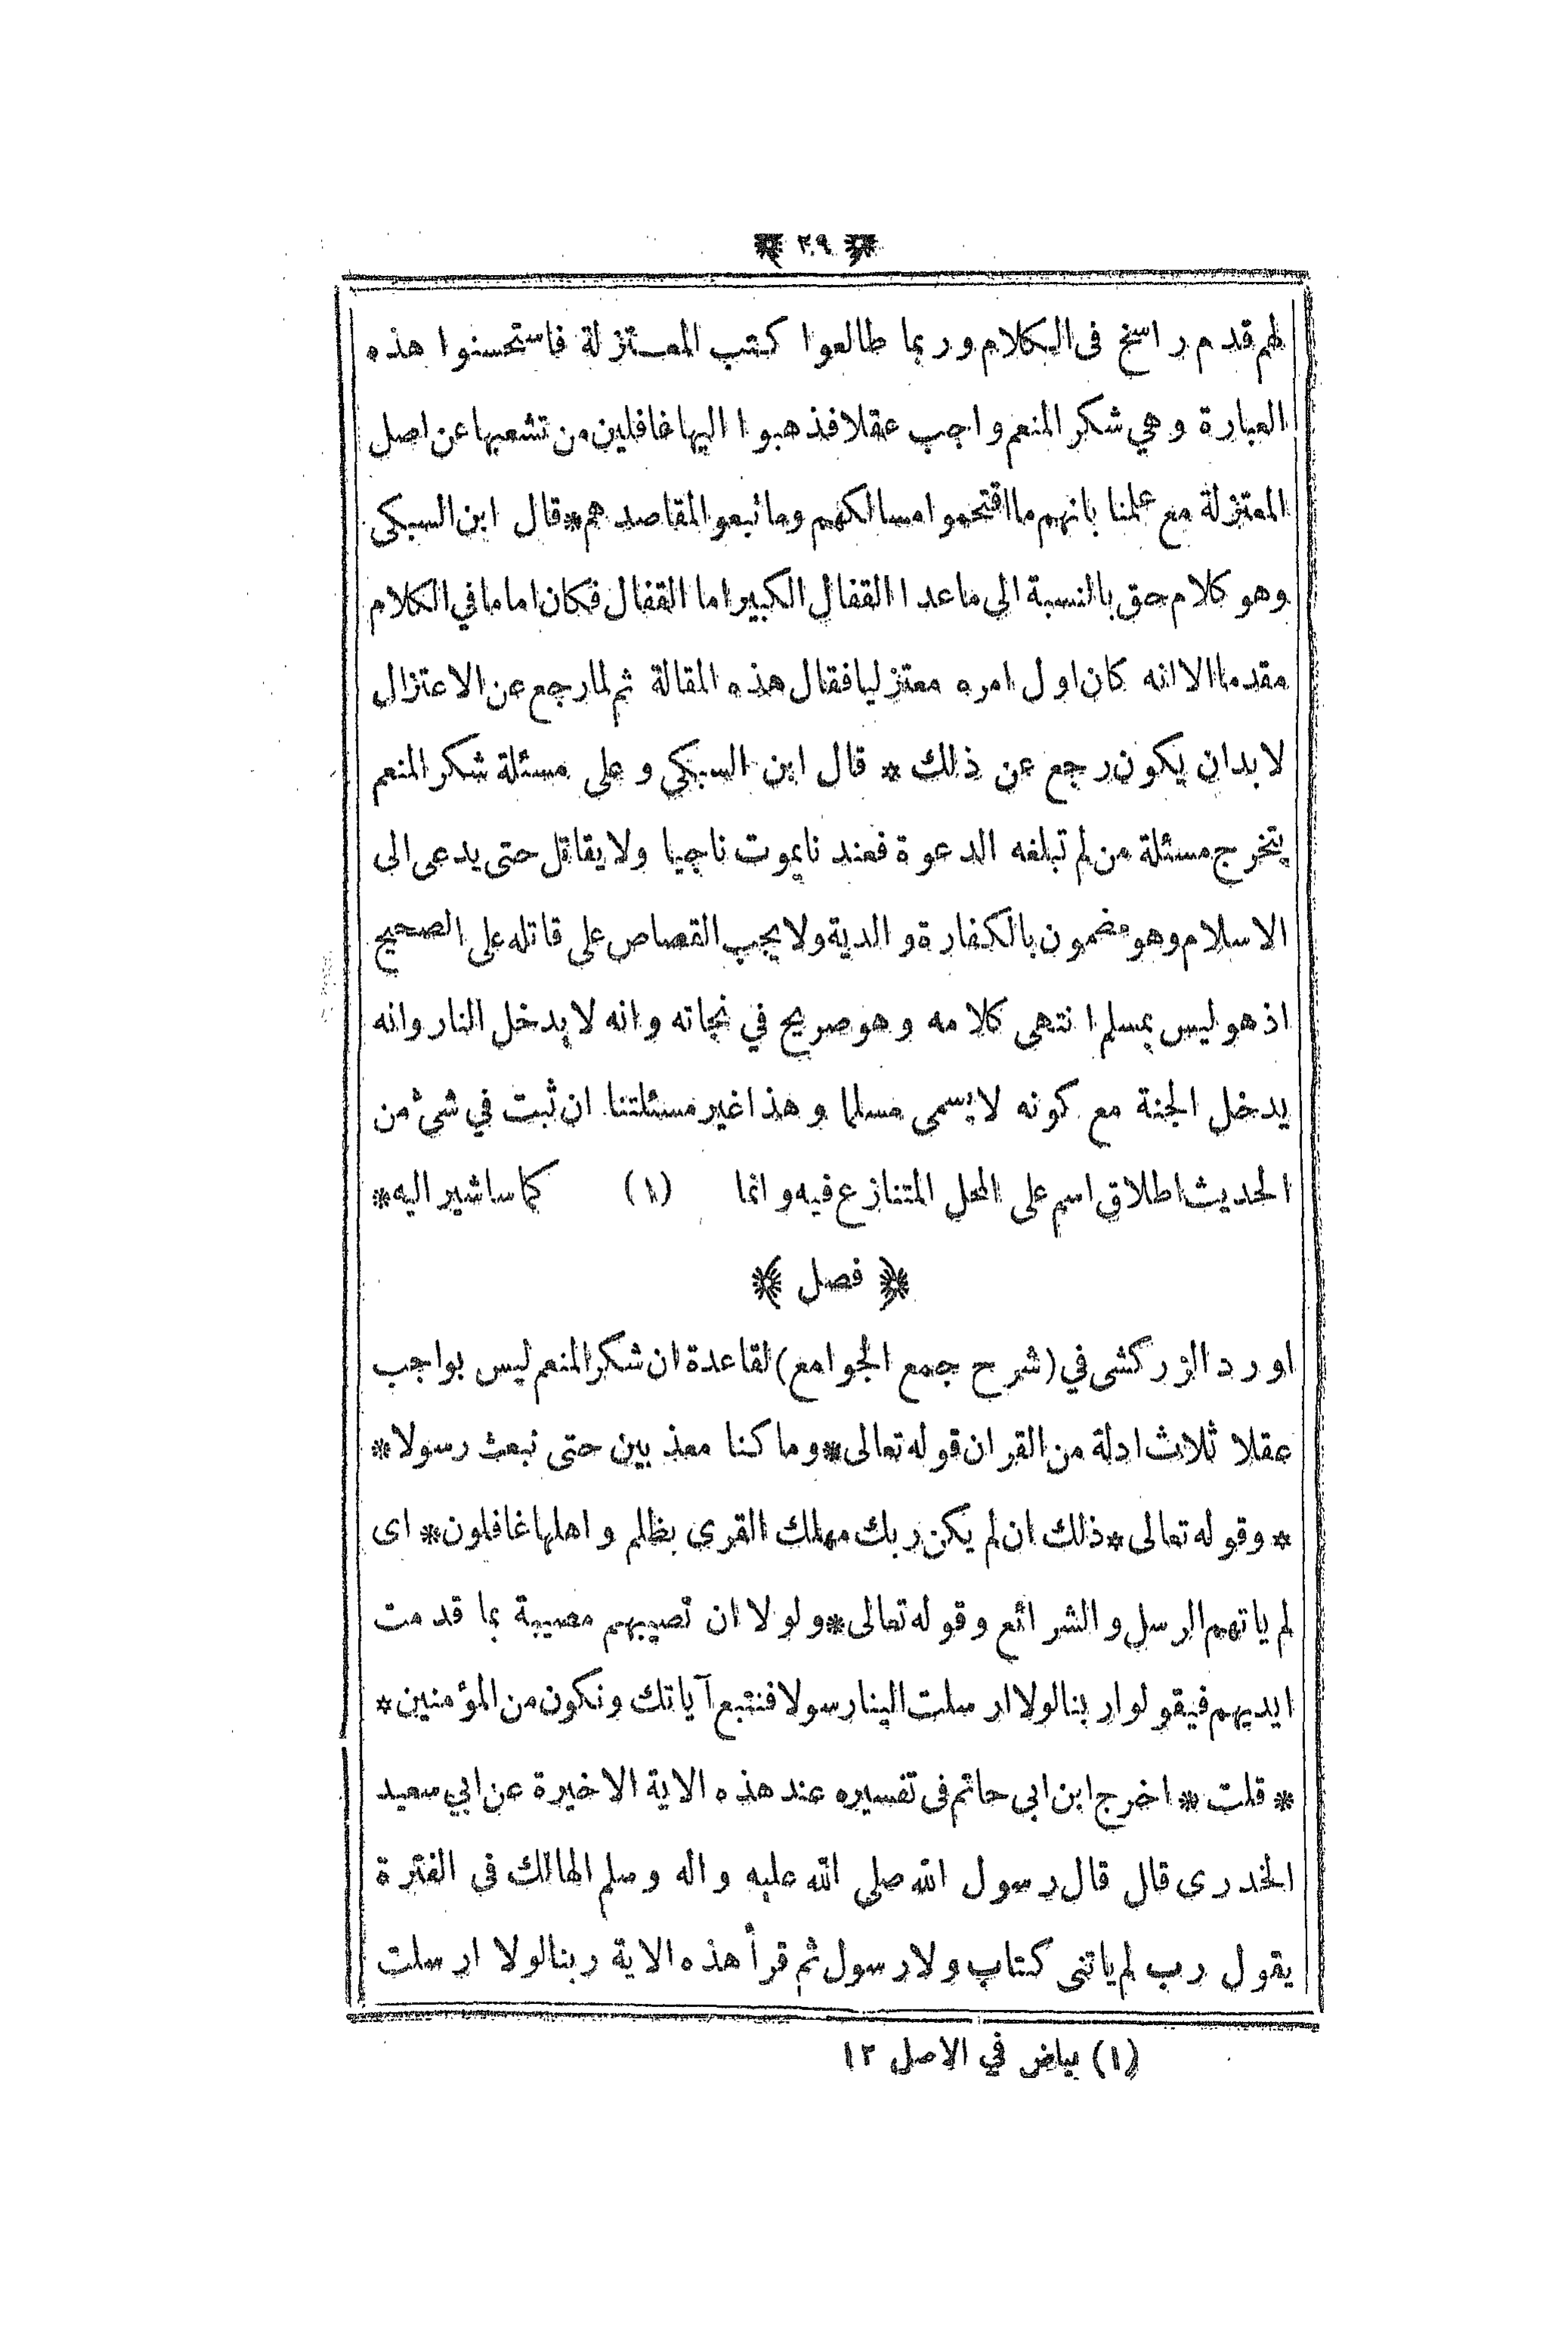 ﴿ ٣٩ ﴾
لهم قدم راسخ فى الكلام وربما طالعوا كتب المعتزلة فاستحسنوا هذه
العبارة وهي شكر المنعم واجب عقلا فذهبوا اليها غافلين من تشعبها عن اصل
المعتزلة مع علمنا بانهم ما اقتحموا مسالكهم وما تبعوا لمقاصدهم * قال ابن السبكى
وهو كلام حق بالنسبة الى ما عدا القفال الكبير اما القفال فكان اماما في الكلام
مقدما الا انه كان اول امره معتزليا فقال هذه المقالة ثم لما رجع عن الاعتزال
لا بد ان يكون رجع عن ذلك * قال ابن السبكي و على مسئلة شكر المنعم
يتخرج مسئلة من لم تبلغه الدعوة فعندنا يموت ناجيا ولا يقاتل حتى يدعى الى
الاسلام وهو مضمون بالكفارة والدية ولا يجب القصاص على قاتله على الصحيح
اذ هو ليس بمسلم انتهى كلامه وهو صريح في نجاته وانه لا يدخل النار وانه
يدخل الجنة مع كونه لا يسمى مسلما وهذا غير مسئلتنا ان ثبت في شئ من
الحديث اطلاق اسم على المحل المتنازع فيه وانما (١) كما ساشير اليه *
﴿ فصل ﴾
اورد الزركشى في (شرح جمع الجوامع) لقاعدة ان شكر المنعم ليس بواجب
عقلا ثلاث ادلة من القران قوله تعالى * وما كنا معذبين حتى نبعث رسولا *
* وقوله تعالى * ذلك ان لم يكن ربك مهلك القرى بظلم و اهلها غافلون * اى
لم ياتهم الرسل والشرائع وقوله تعالى * ولولا ان تصيبهم مصيبة بما قدمت
ايديهم فيقولوا ربنا لولا ارسلت الينا رسولا فنتبع آياتك ونكون من المؤمنين *
* قلت * اخرج ابن ابى حاتم فى تفسيره عند هذه الاية الاخيرة عن ابي سعيد
الخدرى قال قال رسول الله صلى الله عليه واله وسلم الهالك فى الفترة
يقول رب لم ياتنى كتاب ولا رسول ثم قرأ هذه الاية ربنا لولا ارسلت
(١) بياض في الاصل ١٢